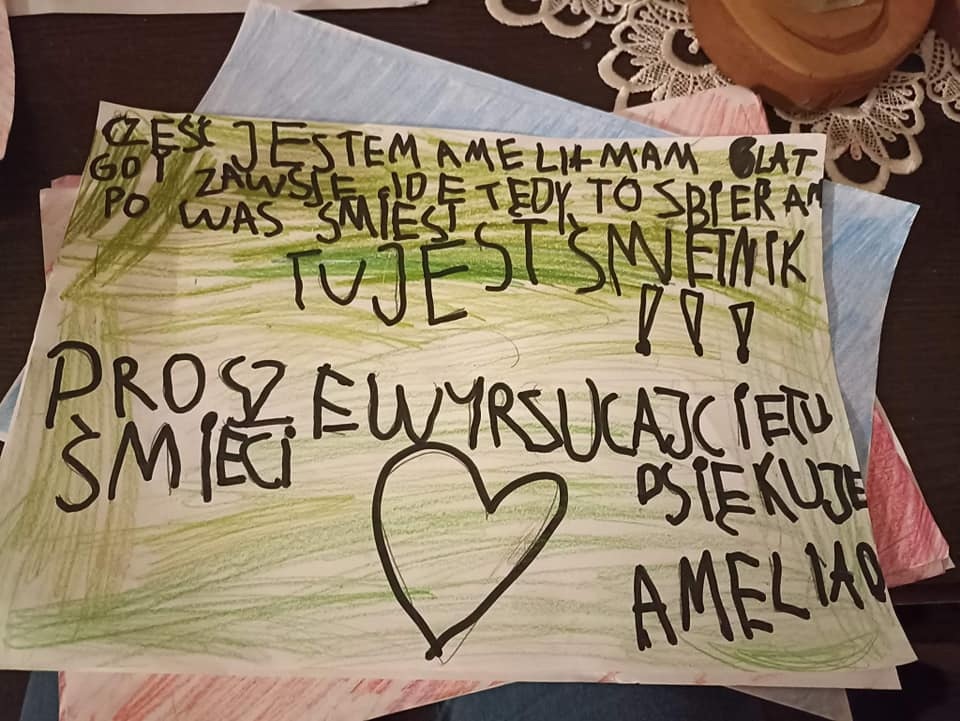 CZEŚĆ JESTEM AMELIA MAM 6 LAT
GDY ZAWSIE IDE TĘDY TO SBIERAM
PO WAS ŚMIEŚI
TU JEST ŚMIETNIK
!!!
PROSZ E WYRSUCAJCIE TU
ŚMIECI
DSIĘKUJE
AMELIA D